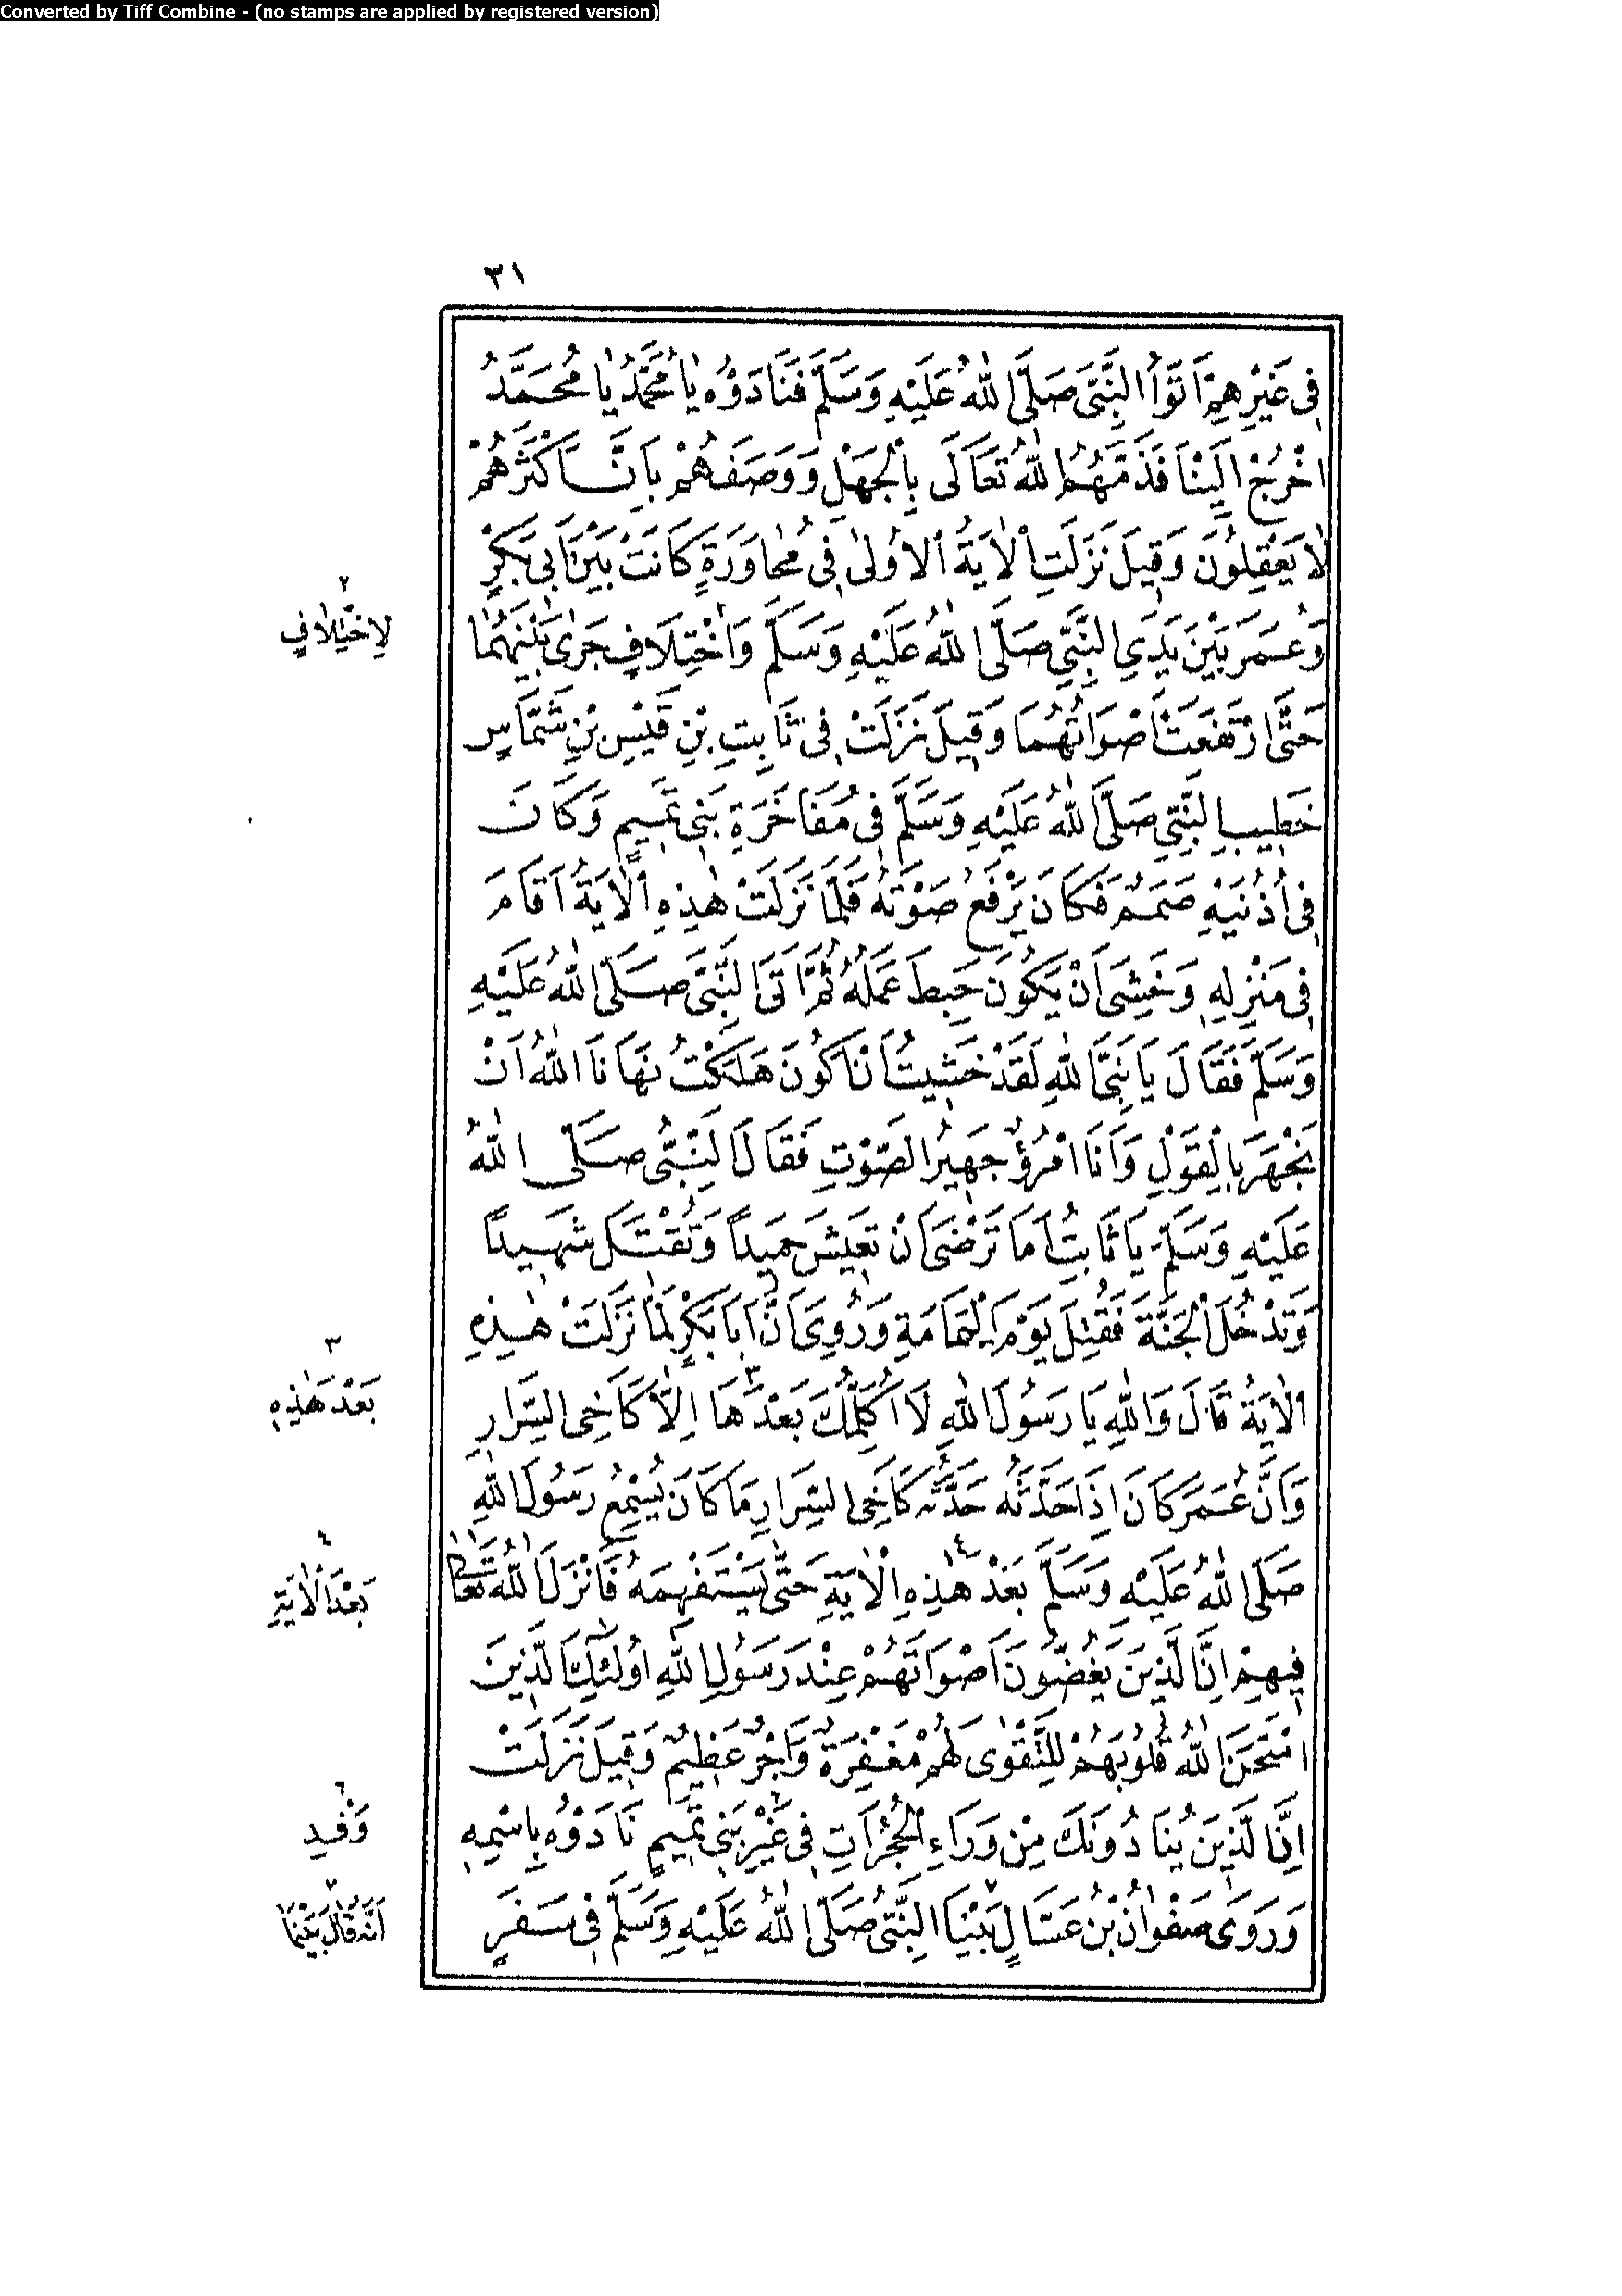 Converted by Tiff Combine - (no stamps are applied by registered version)
٣١
فِي غَيْرِهِمْ اَتَوُا النَّبِيَّ صَلَّى اللهُ عَلَيْهِ وَسَلَّمَ فَنَادَوْهُ يَا مُحَمَّدُ يَا مُحَمَّدُ
اخْرُجْ اِلَيْنَا فَذَمَّهُمُ اللهُ تَعَالَى بِالْجَهْلِ وَوَصَفَهُمْ بِاَنَّ اَكْثَرَهُمْ
لَا يَعْقِلُونَ وَقِيلَ نَزَلَتِ الْاٰيَةُ الْاُولٰى فِي مُحَاوَرَةٍ كَانَتْ بَيْنَ اَبِي بَكْرٍ
وَعُمَرَ بَيْنَ يَدَيِ النَّبِيِّ صَلَّى اللهُ عَلَيْهِ وَسَلَّمَ وَاخْتِلَافٍ٢ جَرٰى بَيْنَهُمَا
حَتَّى ارْتَفَعَتْ اَصْوَاتُهُمَا وَقِيلَ نَزَلَتْ فِي ثَابِتِ بْنِ قَيْسِ بْنِ شَمَّاسٍ
خَطِيبِ النَّبِيِّ صَلَّى اللهُ عَلَيْهِ وَسَلَّمَ فِي مُفَاخَرَةِ بَنِي تَمِيمٍ وَكَانَ
فِي اُذُنَيْهِ صَمَمٌ فَكَانَ يَرْفَعُ صَوْتَهُ فَلَمَّا نَزَلَتْ هٰذِهِ الْاٰيَةُ اَقَامَ
فِي مَنْزِلِهِ وَخَشِيَ اَنْ يَكُونَ حَبِطَ عَمَلُهُ ثُمَّ اَتَى النَّبِيَّ صَلَّى اللهُ عَلَيْهِ
وَسَلَّمَ فَقَالَ يَا نَبِيَّ اللهِ لَقَدْ خَشِيتُ اَنْ اَكُونَ هَلَكْتُ نَهَانَا اللهُ اَنْ
نَجْهَرَ بِالْقَوْلِ وَاَنَا امْرُؤٌ جَهِيرُ الصَّوْتِ فَقَالَ النَّبِيُّ صَلَّى اللهُ
عَلَيْهِ وَسَلَّمَ يَا ثَابِتُ اَمَا تَرْضَى اَنْ تَعِيشَ حَمِيدًا وَتُقْتَلَ شَهِيدًا
وَتَدْخُلَ الْجَنَّةَ فَقُتِلَ يَوْمَ الْيَمَامَةِ وَرُوِيَ اَنَّ اَبَا بَكْرٍ لَمَّا نَزَلَتْ هٰذِهِ
الْاٰيَةُ قَالَ وَاللهِ يَا رَسُولَ اللهِ لَا اُكَلِّمُكَ بَعْدَهَا٣ اِلَّا كَاَخِي السِّرَارِ
وَاَنَّ عُمَرَ كَانَ اِذَا حَدَّثَهُ حَدَّثَهُ كَاَخِي السِّرَارِ مَا كَانَ يُسْمِعُ رَسُولَ اللهِ
صَلَّى اللهُ عَلَيْهِ وَسَلَّمَ بَعْدَ هٰذِهِ الْاٰيَةِ٤ حَتَّى يَسْتَفْهِمَهُ فَاَنْزَلَ اللهُ تَعَالٰى
فِيهِمْ اِنَّ الَّذِينَ يَغُضُّونَ اَصْوَاتَهُمْ عِنْدَ رَسُولِ اللهِ اُولٰئِكَ الَّذِينَ
امْتَحَنَ اللهُ قُلُوبَهُمْ لِلتَّقْوٰى لَهُمْ مَغْفِرَةٌ وَاَجْرٌ عَظِيمٌ وَقِيلَ نَزَلَتْ
اِنَّ الَّذِينَ يُنَادُونَكَ مِنْ وَرَاءِ الْحُجُرَاتِ فِي غَيْرِ٦ بَنِي تَمِيمٍ نَادَوْهُ بِاسْمِهِ
وَرَوَى صَفْوَانُ بْنُ عَسَّالٍ٧ بَيْنَا النَّبِيُّ صَلَّى اللهُ عَلَيْهِ وَسَلَّمَ فِي سَفَرٍ
٢
لِاخْتِلَافٍ
٣
بَعْدَ هٰذِهِ
٤
بَعْدَ الْاٰيَةِ
٦
وَفْدِ
٧
اَنَّهُ قَالَ بَيْنَمَا